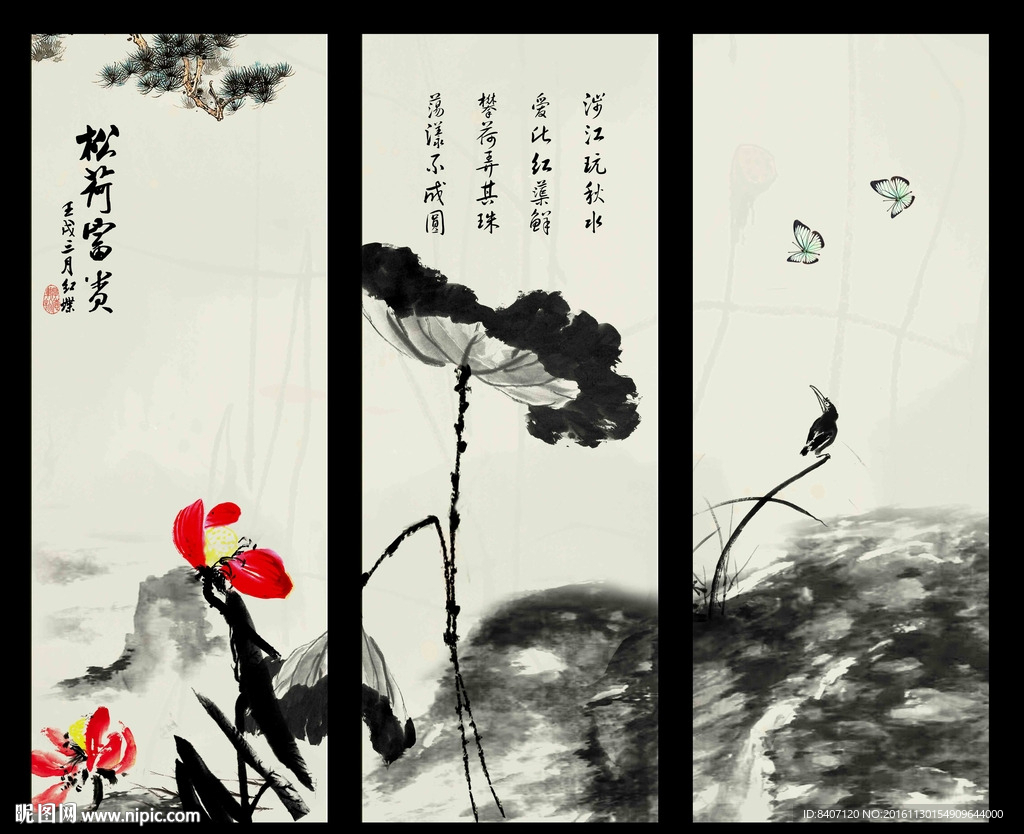 松荷富贵
壬戌三月红蝶
涉江玩秋水
爱此红蕖鲜
攀荷弄其珠
荡漾不成圆
昵图网 www.nipic.com
ID:8407120 NO:20161130154909644000